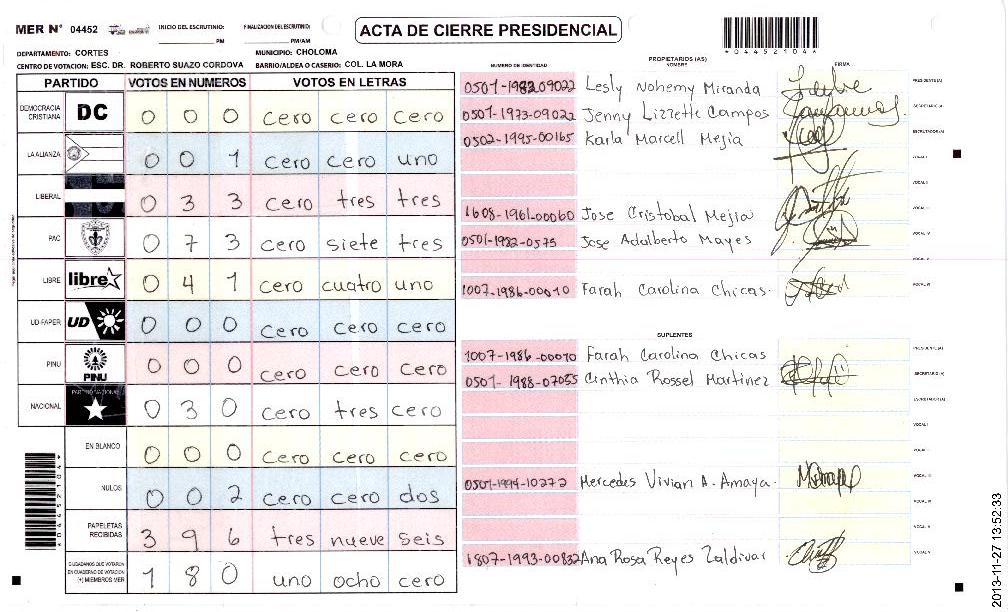 MER N° 04452 INICIO DEL ESCRUTINIO: PM FINALIZACION DEL ESCRUTINIO: PM/AM
ACTA DE CIERRE PRESIDENCIAL
*04452104*
DEPARTAMENTO: CORTES MUNICIPIO: CHOLOMA
CENTRO DE VOTACION: ESC. DR. ROBERTO SUAZO CORDOVA BARRIO/ALDEA O CASERIO: COL. LA MORA
PARTIDO VOTOS EN NUMEROS VOTOS EN LETRAS
DEMOCRACIA CRISTIANA DC 0 0 0 cero cero cero
LA ALIANZA 0 0 1 cero cero uno
LIBERAL 0 3 3 cero tres tres
PAC 0 7 3 cero siete tres
LIBRE libre 0 4 1 cero cuatro uno
UD-FAPER UD 0 0 0 cero cero cero
PINU PINU 0 0 0 cero cero cero
NACIONAL PARTIDO NACIONAL 0 3 0 cero tres cero
EN BLANCO 0 0 0 cero cero cero
NULOS 0 0 2 cero cero dos
PAPELETAS RECIBIDAS 3 9 6 tres nueve seis
CIUDADANOS QUE VOTARON EN CUADERNO DE VOTACION (+) MIEMBROS MER 1 8 0 uno ocho cero
*04452104*
PROPIETARIOS (AS)
NUMERO DE IDENTIDAD NOMBRE FIRMA
0501-1982 09022 Lesly Nohemy Miranda PRESIDENTE(A)
0501-1973-09022 Jenny Lizzette Campos SECRETARIO (A)
0502-1995-00165 Karla Marcell Mejia ESCRUTADOR(A)
VOCAL I
VOCAL II
1608-1961-00060 Jose Cristobal Mejia VOCAL III
0501-1982-0575 Jose Adalberto Mayes VOCAL IV
VOCAL V
1007-1986-00010 Farah Carolina Chicas. VOCAL VI
SUPLENTES
1007-1986-00010 Farah Carolina Chicas PRESIDENTE(A)
0501-1988-07055 Cinthia Rossel Martinez SECRETARIO (A)
ESCRUTADOR(A)
VOCAL I
VOCAL II
0501-1994-10272 Mercedes Vivian A. Amaya. VOCAL III
VOCAL IV
VOCAL V
1807-1993-00832 Ana Rosa Reyes Zaldivar VOCAL VI
2013-11-27 13:52:33